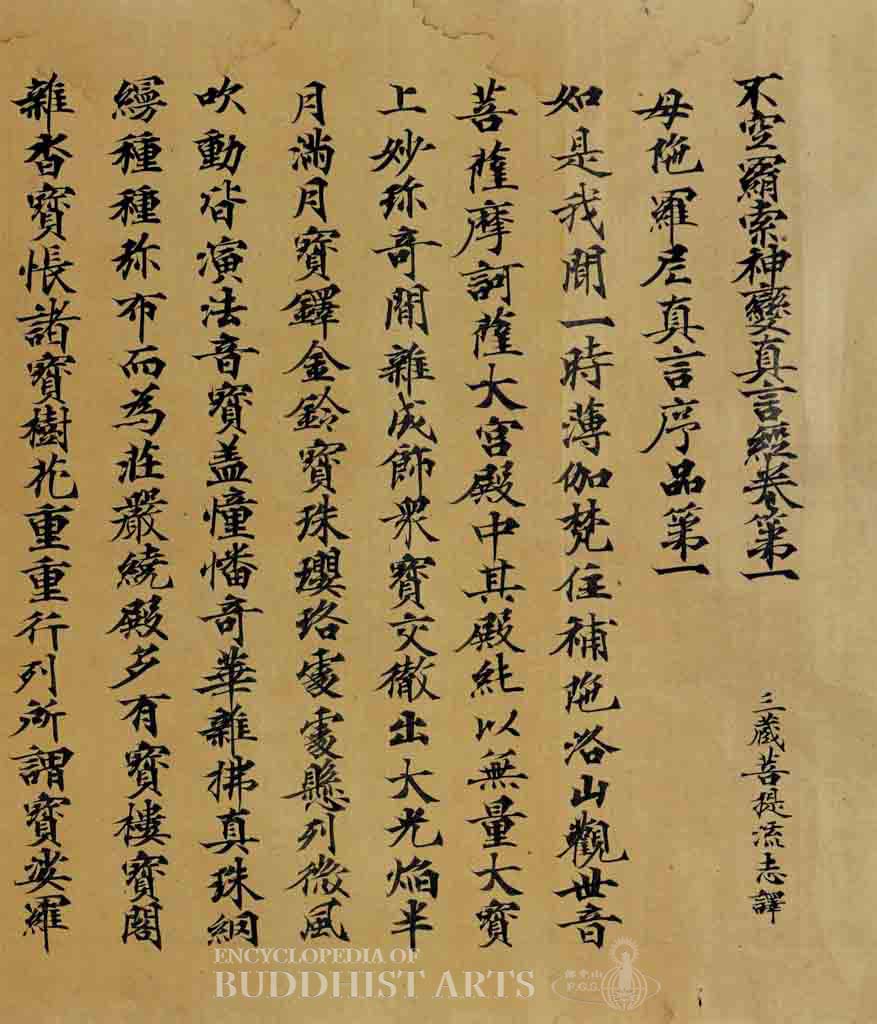 不空羂索神變真言經卷第一
三藏菩提流志譯
母陁羅尼真言序品第一
如是我聞一時薄伽梵住補陁洛山觀世音
菩薩摩訶薩大宮殿中其殿純以無量大寶
上妙珎奇間雜成飾衆寶交徹出大光焰半
月滿月寶鐸金鈴寶珠瓔珞處處懸列微風
吹動皆演法音寶盖憧憣奇華雜拂真珠網
縵種種弥布而為莊嚴繞殿多有寶樓寶閣
雜沓寶悵諸寶樹花重重行列所謂寶娑羅
ENCYCLOPEDIA OF
BUDDHIST ARTS
佛光山
F.G.S.